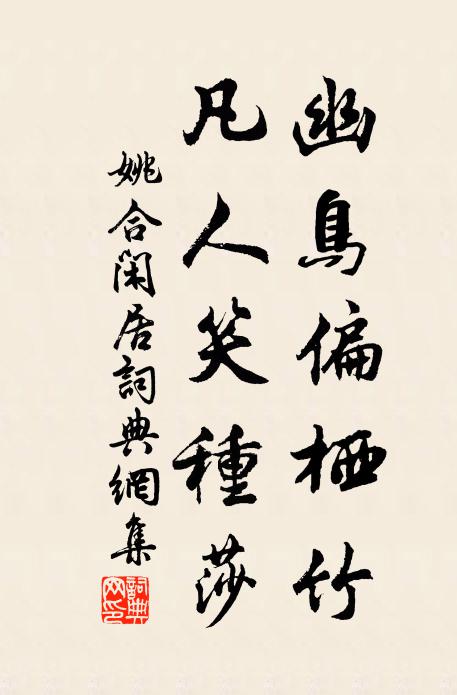 幽鳥偏栖竹
凡人笑種莎
姚合閑居詞典網集
詞典網印